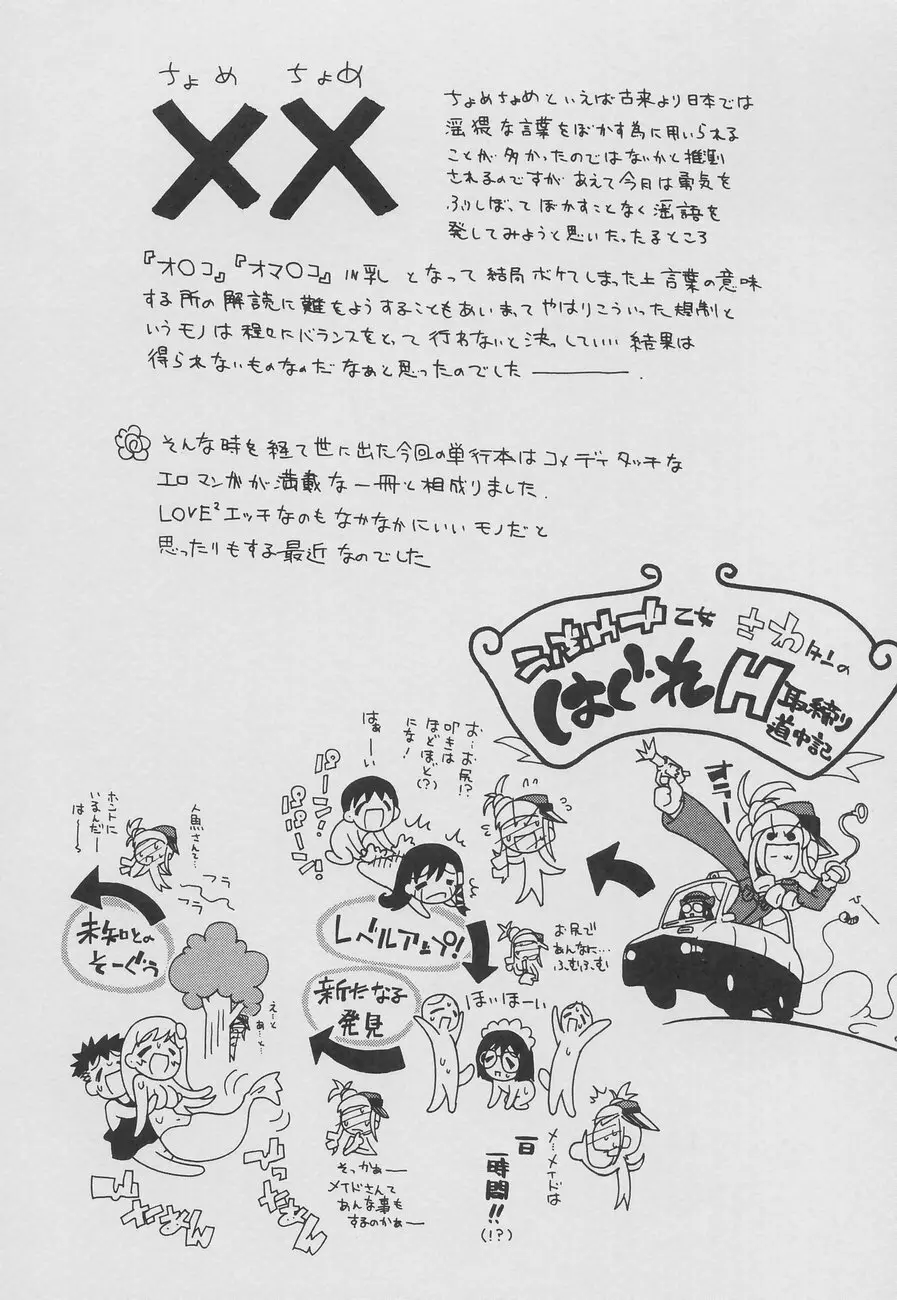 ちょめ ちょめ
××
ちょめちょめといえば古来より日本では
淫猥な言葉をぼかす為に用いられる
ことが多かったのではないかと推測
されるのですが あえて今日は勇気を
ふりしぼってぼかすことなく淫語を
発してみようと思いたったるところ
『オ○コ』『オマ○コ』IN乳 となって結局ボケてしまった上言葉の意味
する所の解読に難をようすることもあいまってやはりこういった規制と
いうモノは程々にバランスをとって行わないと決っしていい結果は
得られないものなのだなぁと思ったのでした――――.
そんな時を経て世に出た今回の単行本はコメディタッチな
エロマンガが満載な一冊と相成りました.
LOVE²エッチなのもなかなかにいいモノだと
思ったりもする最近なのでした
乙女
さわ
はぐれH取締り
道中記
お…お尻!?
叩きは
ほどほど(?)
にな!
はぁーい
パーン!
レベルアップ!
お尻で
あんなに…
ふむふむ
ほいほーい
新たなる
発見
メ…メイドは
一日
一時間!!
(!?)
そっかぁー
メイドさんて
あんな事も
するのかぁー
人魚さんて…
ホントに
いるんだー
は〜〜
フラ
フラ
未知との
そーぐう
え…と
あ…と…